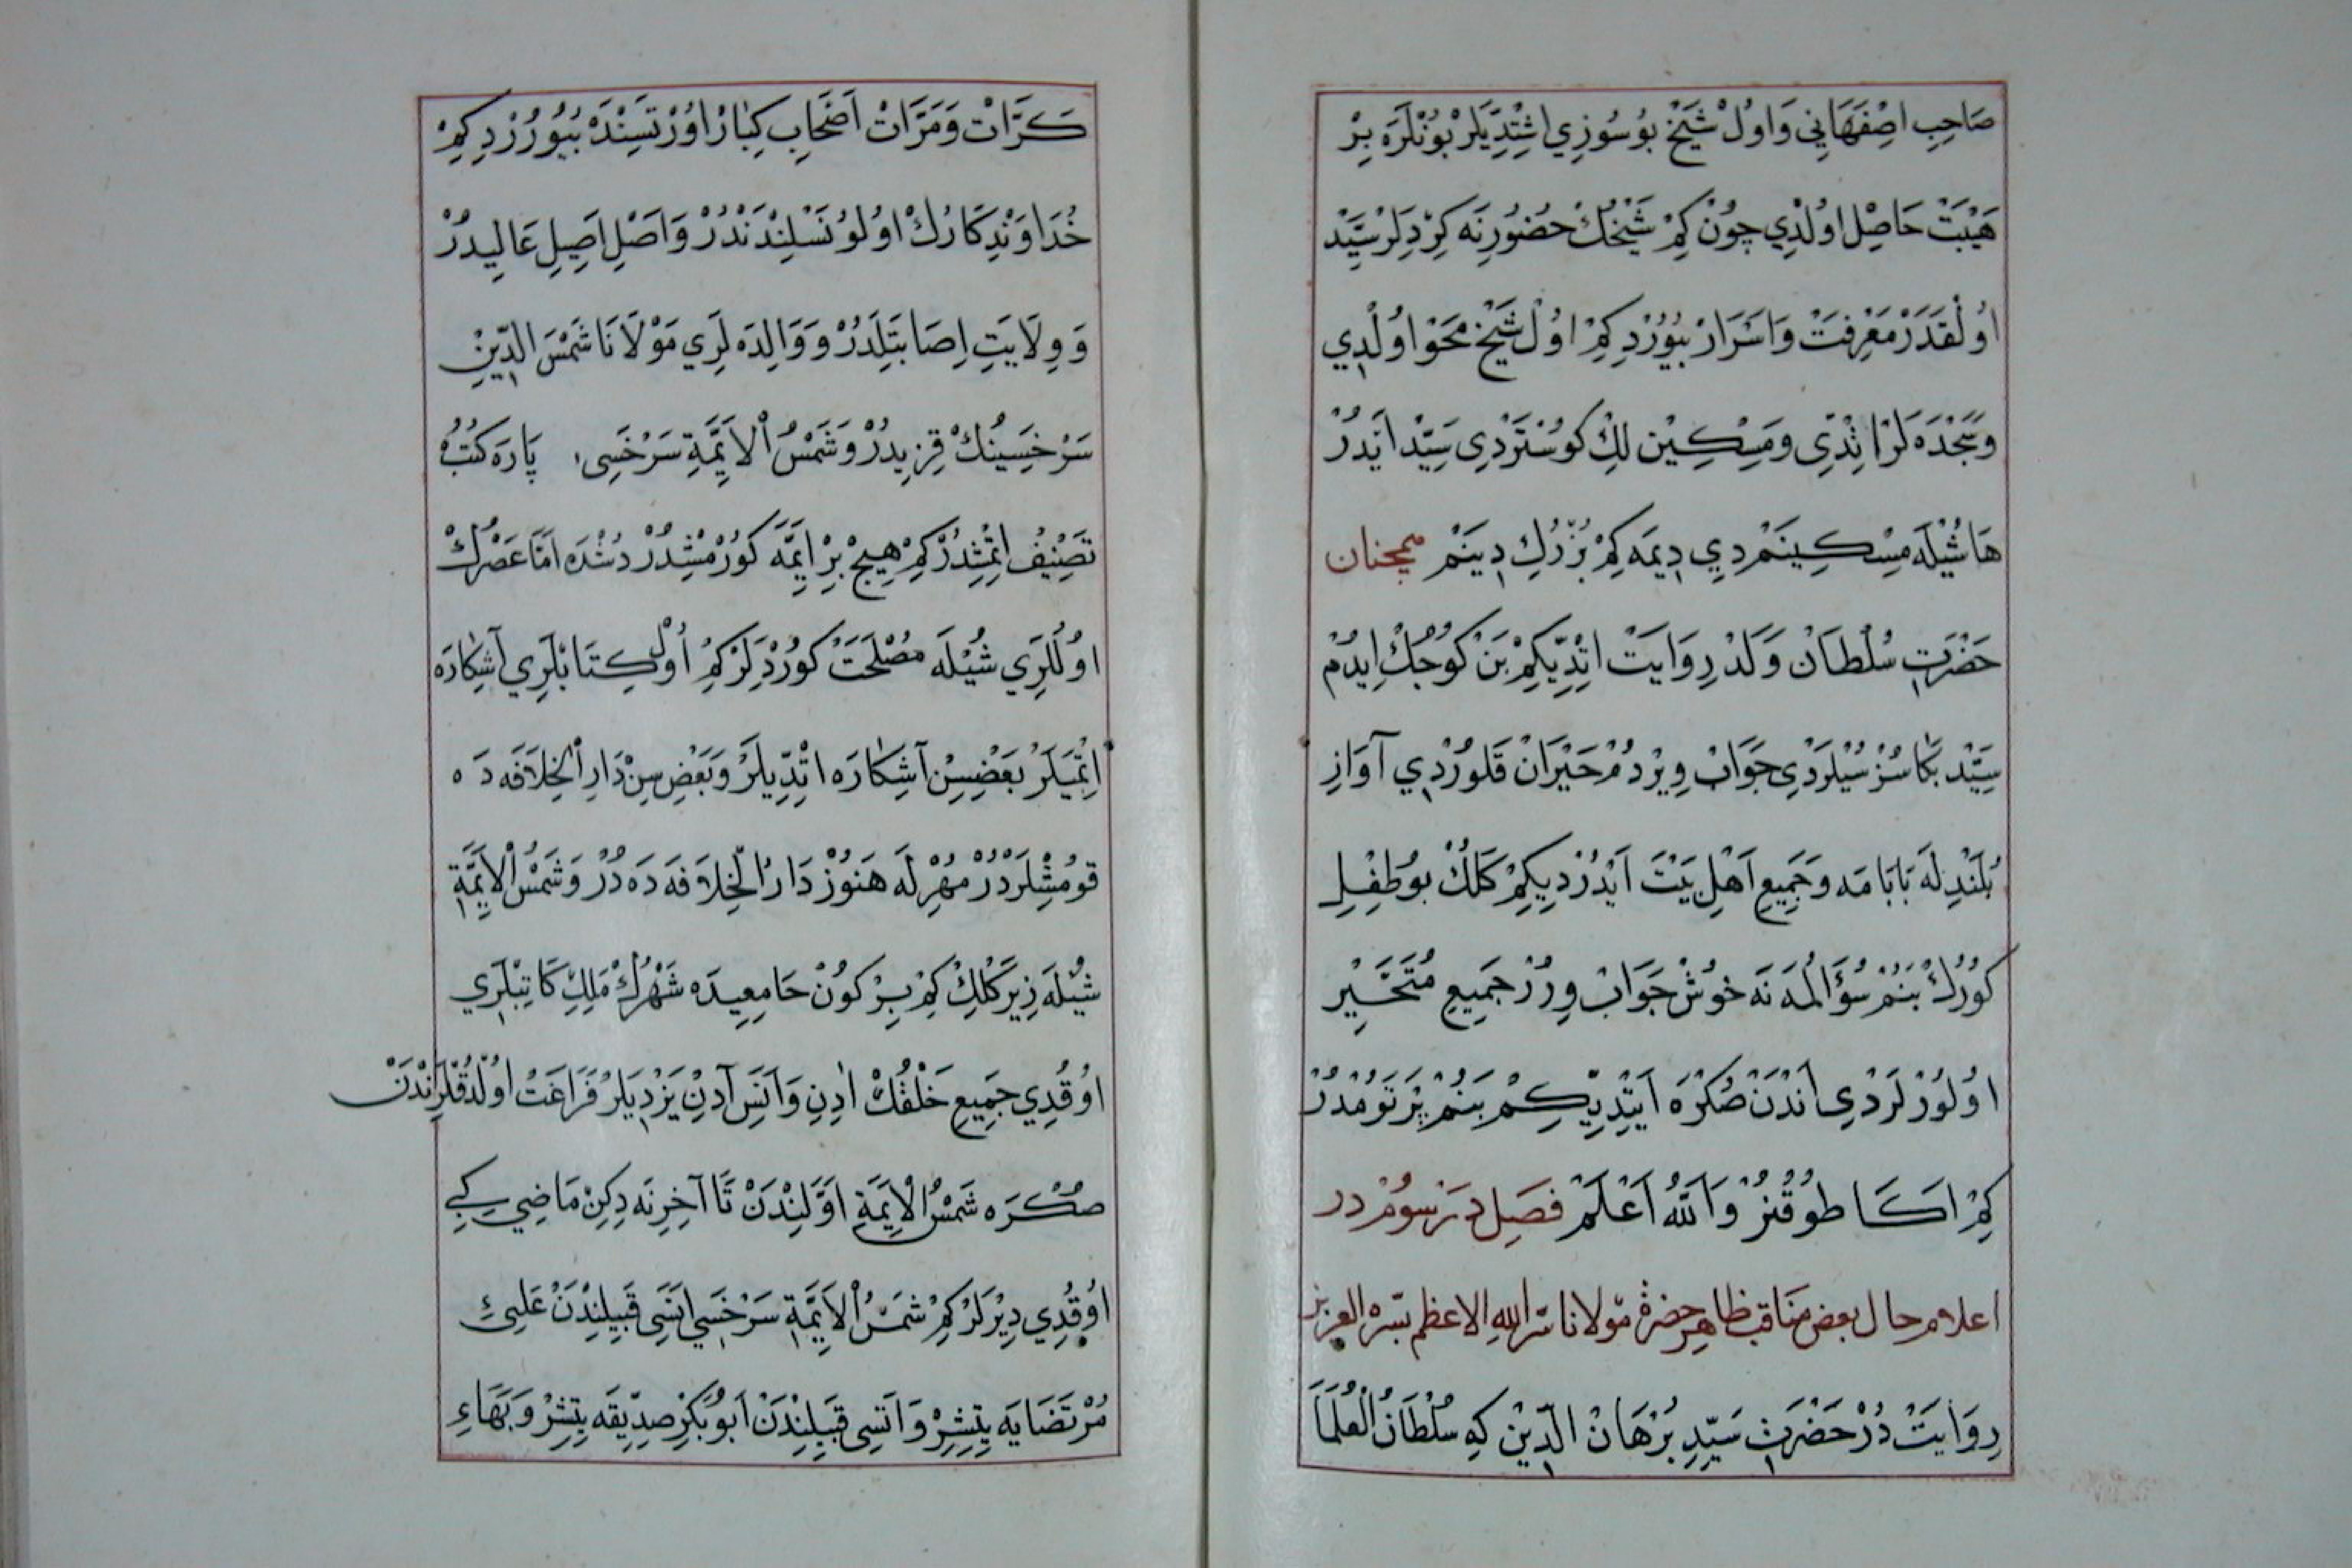 صَاحِبِ اصْفَهَانِي وَاوُلْ شَيْخْ بُوسُوزِي اشِتْدِيلَرْ بُونْلَرَه بِرْ
هَيْبَتْ حَاصِلْ اوُلْدِي چُونْ كِمْ شَيْخُكْ حُضُورِنَه كِرْدِلَرْ سَيِّدْ
اوُلْقَدَرْ مَعْرِفَتْ وَاسْرَارْ بُيُورْدِكِمْ اوُلْ شَيْخْ مَحَوْ اوُلْدِي
وَسَجْدَه لَرْ اتْدِي وَمِسْكِينْ لِكْ كُوسْتَرْدِي سَيِّدْ ايَدُرْ
هَا شُيْلَه مِسْكِينَمْ دِي دِيمَه كِمْ بُزُّرْكِ دِينَمْ همچنان
حَضْرَتِ سُلْطَانْ وَلَدْ رِوَايَتْ اتِدِّيكِمْ بَنْ كُوجُكْ ايدُمْ
سَيِّدْ بَكَا سُزْ سُيْلَرْدِي جَوَابْ وِيرْدُمْ حَيْرَانْ قَلُورْدِي آوَازِ
بُلَنْدِلَه بَابَامَه وَجَمِيعِ اَهْلِ بَيْتَ اَيْدُرْدِيكِمْ كَلُكْ بُوطِفْلِ
كُورُكْ بَنُمْ سُؤَالُمَه نَه خُوشْ جَوَابْ وِرُرْ جَمِيعِ مُتَحَيِّرْ
اوُلُورْ لَرْدِي اَنْدَنْ صُكْرَه اَيتِدِّيكِمْ بَنُمْ پَرْتَوُمْدُرْ
كِمْ اَكَا طُوقُنُرْ وَاَللّٰهُ اَعْلَمْ فَصِل دَرَسوُمْ در
اعلام حال بعض مَنَاقب ظاهر حضرة مولانا سرّ اللهِ الاعظم بسّره العزيز
رِوَايَتْ دُرْ حَضْرَتِ سَيِّدِ بُرْهَانْ الدّينْ كِه سُلْطَانُ الْعُلَمَا
كَرَّاتْ وَمَرَّاتْ اَصْحَابِ كِبَارْ اوُرْتَسِنْدَه بُيُورُرْدِ كِمْ
خُدَاوَنْدِكَارُكْ اوُلُو نَسْلِنْدَنْدُرْ وَاَصْلِ اَصِيلِ عَالِيدُرْ
وَ وِلَايَتِ اِصَابَتَلِدُرْ وَ وَالِدَه لَرِي مَوْلَانَا شَمْسَ الدّينِ
سَرْخَسِينُكْ قِزِيدُرْ وَشَمْسُ اْلاَيِمَّةِ سَرْخَسِى پَارَه كُتُبْ
تَصْنِيفْ اتِمْشِدُرْ كِمْ هِيچْ بِرْ ايِمَّه كُورْمَشِدُرْ دُشْدَه اَمَّا عَصْرُكْ
اوُلُلَرِي شُيْلَه مَصْلَحَتْ كُورْدِلَرْ كِمْ اُولْ كِتَابْلَرِي آشِكَارَه
اتِمْيَلَرْ بَعْضِسِنْ آشِكَارَه اتِدِّيلَرْ وَبَعْضِ سِنْ دَارِ اْلخِلَافَه دَه
قُومُشْلَرْدُرْ مُهْرِلَه هَنُوزْ دَارُ الْخِلَافَه دَه دُرْ وَشَمْسُ اْلاَيِمَّةِ
شُيْلَه زِيرَكْلِكْ كِمْ بِرْ كُونْ جَامِعِيدَه شَهْرُكْ مَلِكِ كَاتِبْلَرِي
اوُقُدِي جَمِيعِ خَلْقُكْ ادِنِ وَآنَسِ آدِنْ يَزْدِيلَرْ فَرَاغَتْ اوُلْدُقْلَرِنْدَنْ
صُكْرَه شَمْسُ الْاَيِمَّةِ اَوَّلِنْدَنْ تَا آخِرِنَه دِكِنْ مَاضِي كِبِي
اوُقُدِي دِيرْلَرْ كِمْ شَمْسُ اْلاَيِمَّةِ سَرْخَسِي انَسِى قَبِيلِنْدِنْ عَلِيءِ
مُرْتَضَايَه يِتِشِرْ وَ اَتَسِى قَبِيلِنْدَنْ اَبُو بَكْرِ صِدِّيقَه يِتِشِرْ وَ بَهَاءِ